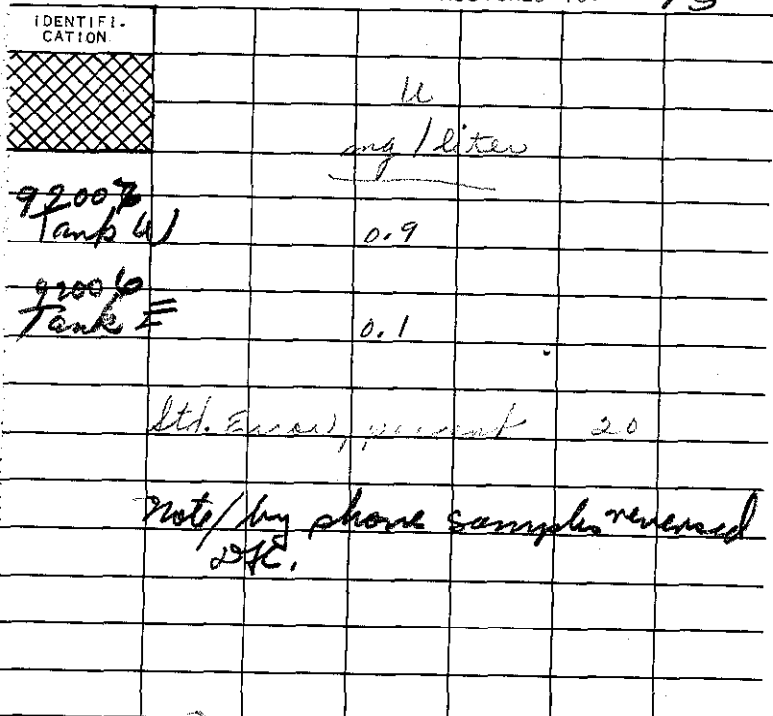 IDENTIFI-
CATION
U
mg/liter
Tank W
0.9
Tank E
0.1
Std. Error, percent 20
Note/by phone samples reversed